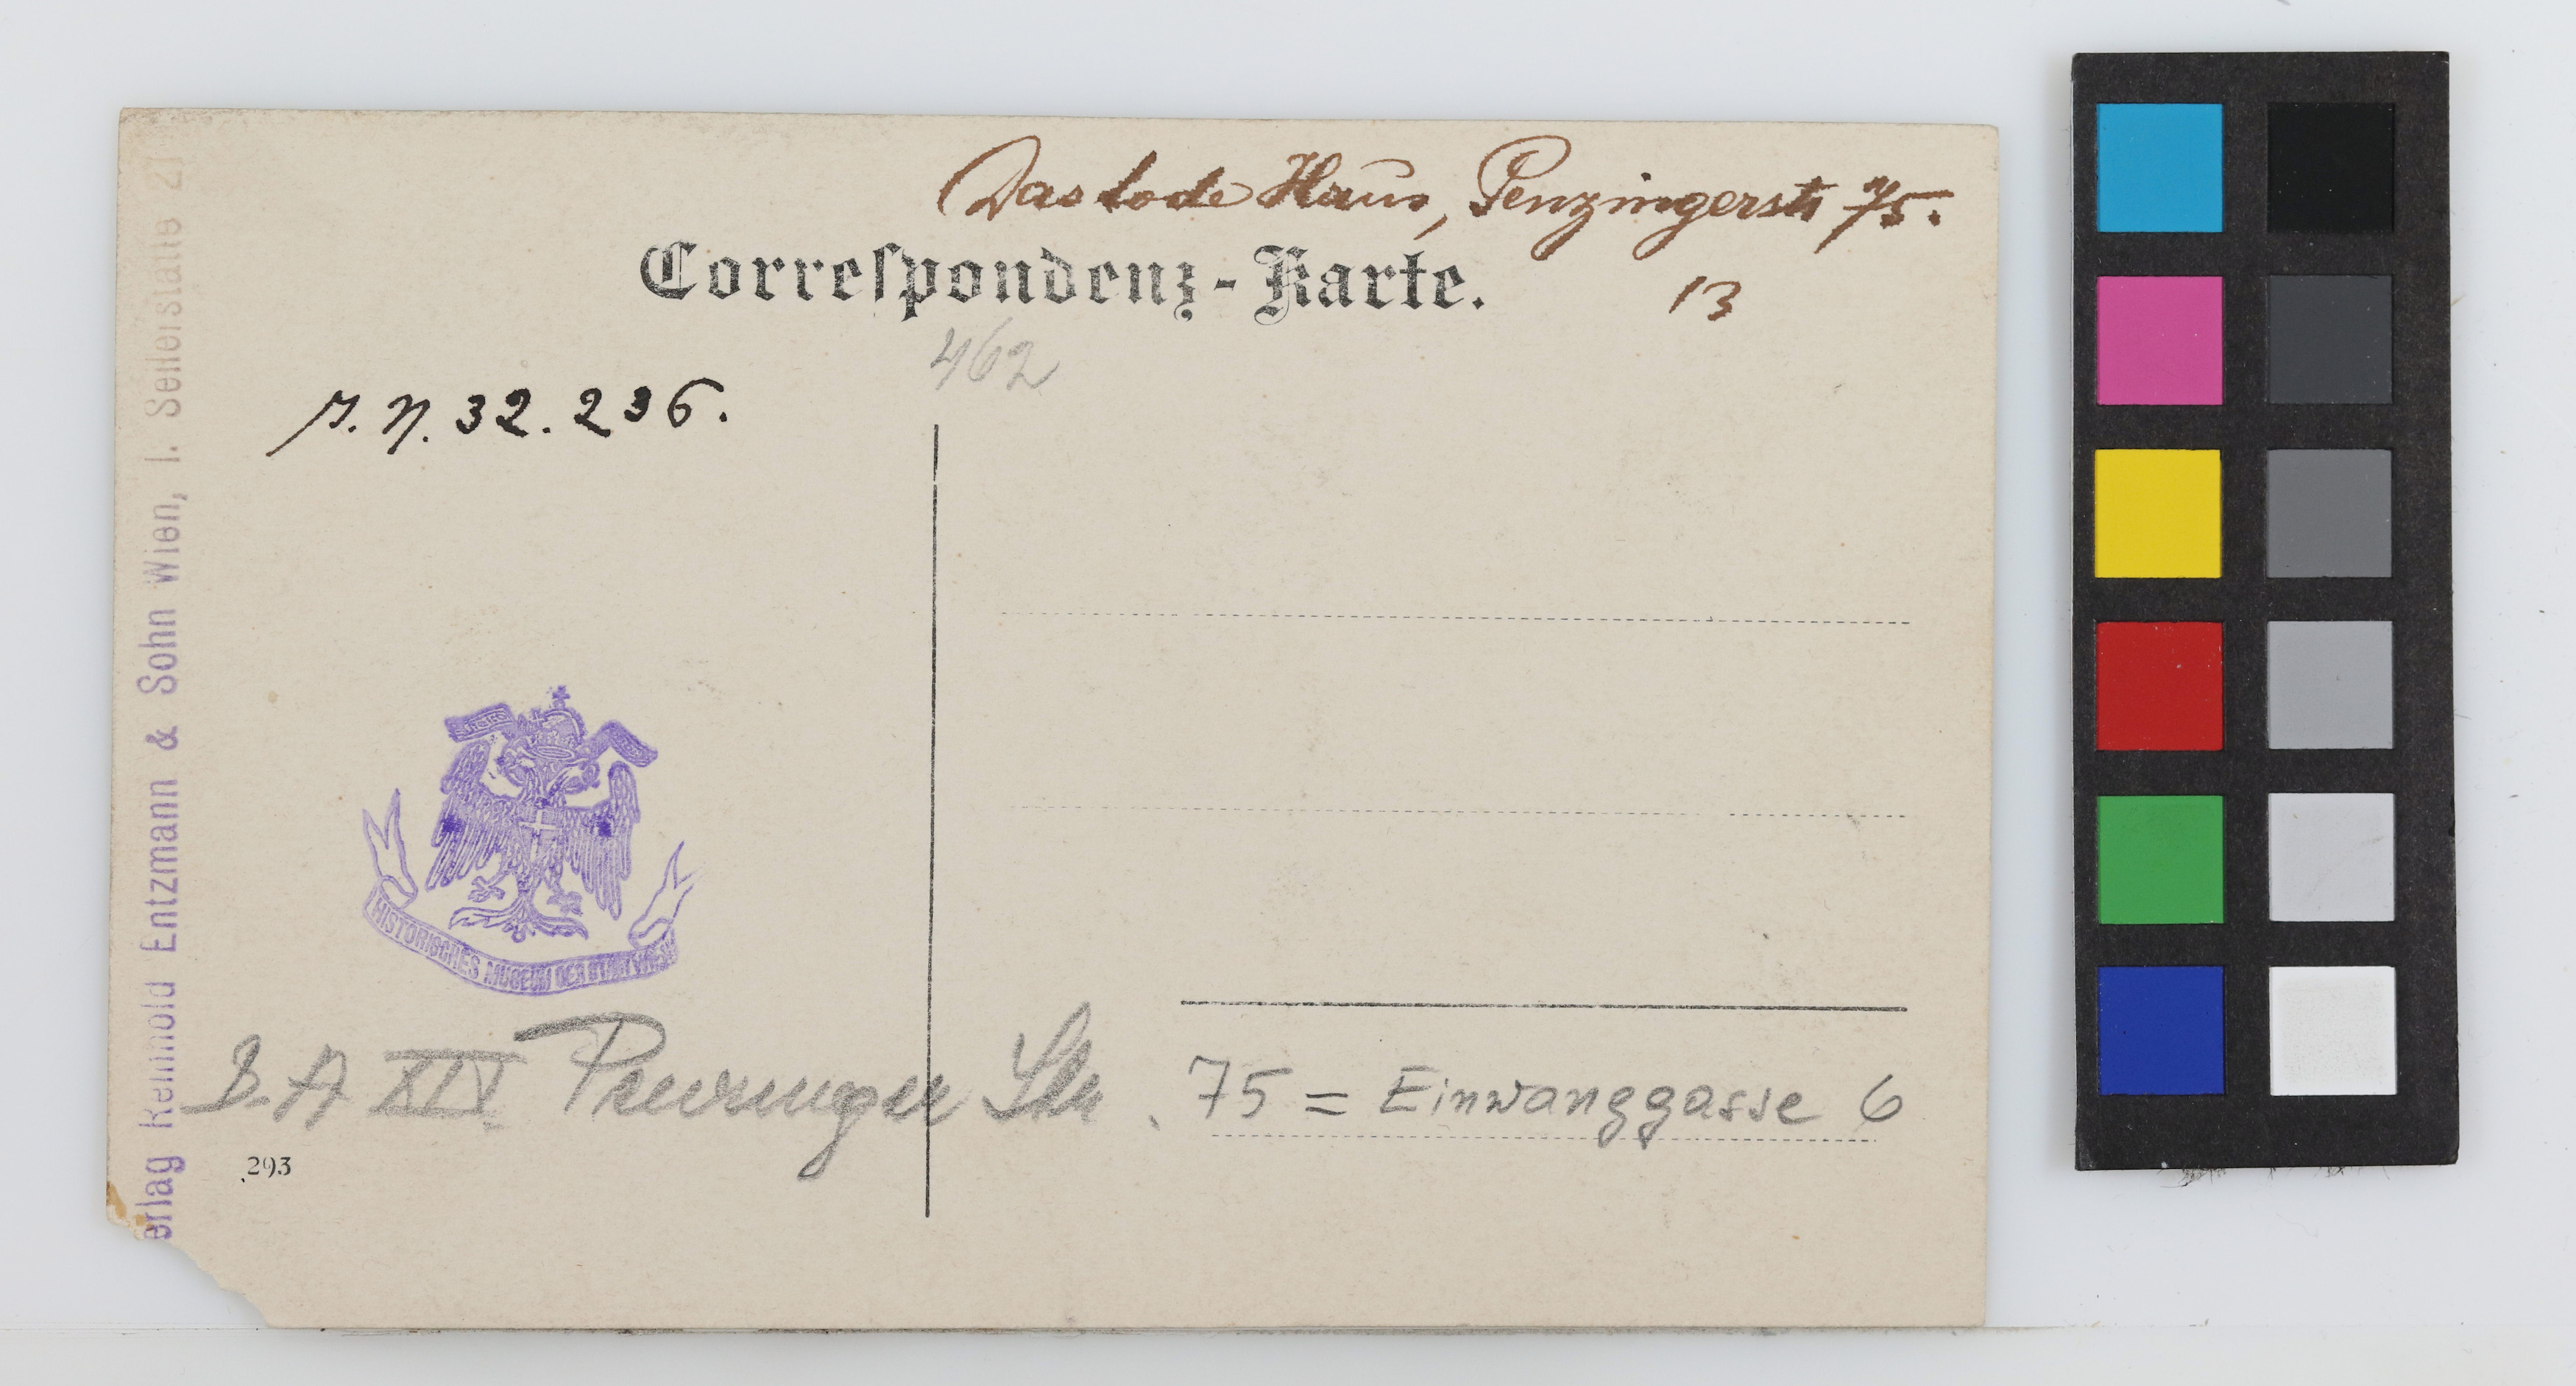 Das tode Haus, Penzingerstr 75.
Correspondenz-Karte.
13
462
J. N. 32.236.
HISTORISCHES MUSEUM DER STADT WIEN
B. A XIV Penzinger Str. 75 = Einwanggasse 6
293
erlag Reinhold Entzmann & Sohn Wien, I. Seilerstätte 21